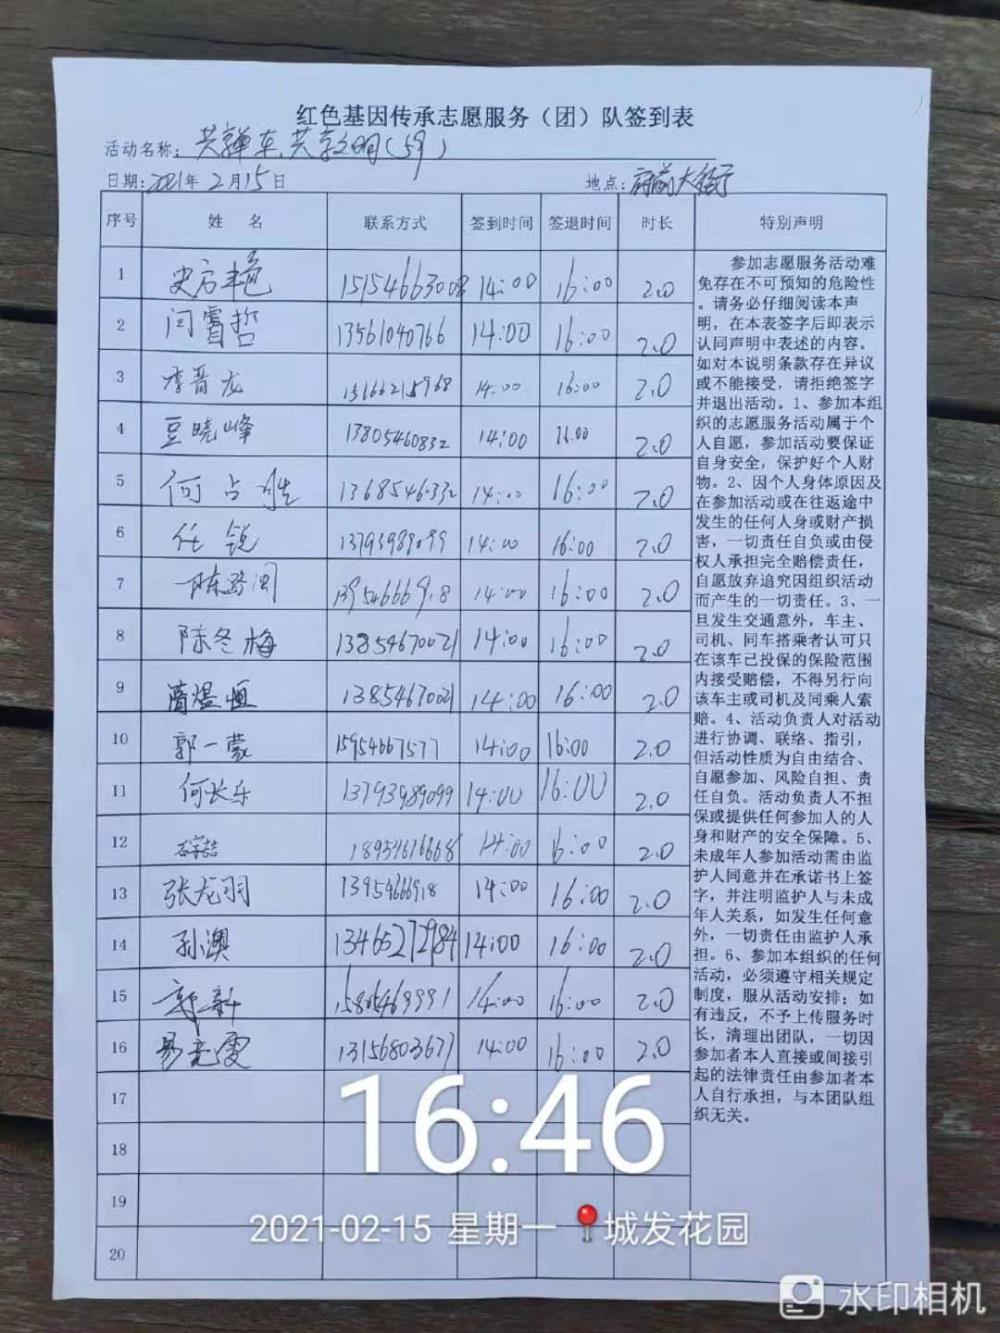 红色基因传承志愿服务（团）队签到表
活动名称：共享单车 共享文明（59）
日期：2021年2月15日 地点：府前大街
序号 姓名 联系方式 签到时间 签退时间 时长 特别声明
1 15154663008 14:00 16:00 2.0
2 闫睿哲 13561040766 14:00 16:00 2.0
3 李晋龙 14:00 16:00 2.0
4 豆晓峰 13805460832 14:00 16:00 2.0
5 何占胜 14:00 16:00 2.0
6 任锐 13793989099 14:00 16:00 2.0
7 14:00 16:00 2.0
8 陈冬梅 13854670021 14:00 16:00 2.0
9 13854670021 14:00 16:00 2.0
10 郭一蒙 15954667577 14:00 16:00 2.0
11 何长乐 13793989099 14:00 16:00 2.0
12 18954616668 14:00 16:00 2.0
13 张龙羽 14:00 16:00 2.0
14 孙澳 13465272984 14:00 16:00 2.0
15 郭新 15805469991 14:00 16:00 2.0
16 13156803677 14:00 16:00 2.0
17
18
19
20
参加志愿服务活动难
免存在不可预知的危险性
。请务必仔细阅读本声
明，在本表签字后即表示
认同声明中表述的内容。
如对本说明条款存在异议
或不能接受，请拒绝签字
并退出活动。1、参加本组
织的志愿服务活动属于个
人自愿，参加活动要保证
自身安全，保护好个人财
物。2、因个人身体原因及
在参加活动或在往返途中
发生的任何人身或财产损
害，一切责任自负或由侵
权人承担完全赔偿责任，
自愿放弃追究因组织活动
而产生的一切责任。3、一
旦发生交通意外，车主、
司机、同车搭乘者认可只
在该车已投保的保险范围
内接受赔偿，不得另行向
该车主或司机及同乘人索
赔。4、活动负责人对活动
进行协调、联络、指引，
但活动性质为自由结合、
自愿参加、风险自担、责
任自负。活动负责人不担
保或提供任何参加人的人
身和财产的安全保障。5、
未成年人参加活动需由监
护人同意并在承诺书上签
字，并注明监护人与未成
年人关系，如发生任何意
外，一切责任由监护人承
担。6、参加本组织的任何
活动，必须遵守相关规定
制度，服从活动安排；如
有违反，不予上传服务时
长，清理出团队，一切因
参加者本人直接或间接引
起的法律责任由参加者本
人自行承担，与本团队组
织无关。
16:46
2021-02-15 星期一 城发花园
水印相机